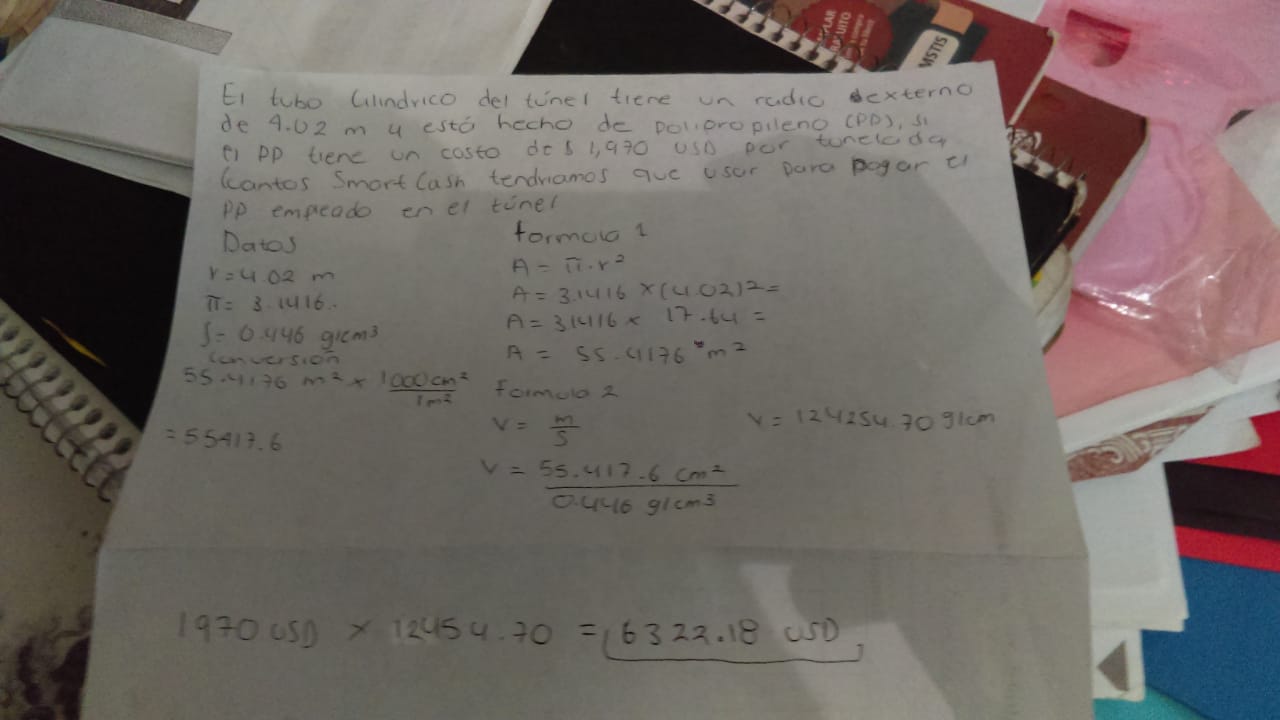 El tubo Cilindrico del túnel tiene un radio externo
de 4.02 m y está hecho de polipropileno (PD), si
el PP tiene un costo de $ 1,970 USD por tonelada
Cantos Smart Cash tendriamos que usar para pagar el
PP empeado en el túnel
Datos
r = 4.02 m
π = 3.1416.
δ = 0.446 g/cm³
Conversión
55.4176 m² x 1000 cm² / 1 m²
= 55417.6
formula 1
A = π·r²
A = 3.1416 x (4.02)² =
A = 3.1416 x 17.64 =
A = 55.4176 m²
formula 2
V = m / δ
V = 55.417.6 cm² / 0.446 g/cm³
V = 124254.70 g/cm
1970 USD x 12454.70 = 6322.18 USD
GRATUITO
MSTIS